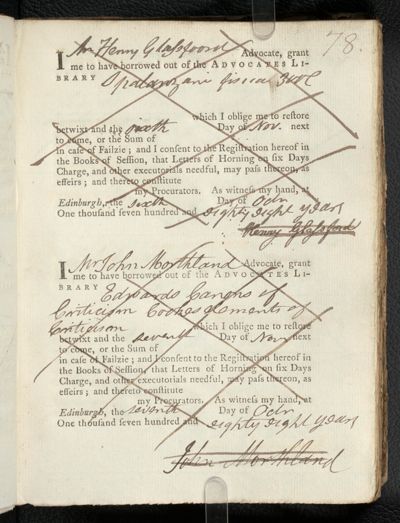 78.
I Mr Henry Glassfoord Advocate, grant
me to have borrowed out of the ADVOCATES LI-
BRARY Spalanzani fisica 3 vol
which I oblige me to restore
betwixt and the sixth Day of Nov. next
to come, or the Sum of
in case of Failzie; and I consent to the Registration hereof in
the Books of Session, that Letters of Horning on six Days
Charge, and other executorials needful, may pass thereon, as
effeirs; and thereto constitute
my Procurators. As witness my hand, at
Edinburgh, the sixth Day of Octr
One thousand seven hundred and eighty eight years
Henry Glassford
I Mr John Morthland Advocate, grant
me to have borrowed out of the ADVOCATES LI-
BRARY Edwards Canons of
Criticism Cookes elements of
Criticism which I oblige me to restore
betwixt and the seventh Day of Nov next
to come, or the Sum of
in case of Failzie; and I consent to the Registration hereof in
the Books of Session, that Letters of Horning on six Days
Charge, and other executorials needful, may pass thereon, as
effeirs; and thereto constitute
my Procurators. As witness my hand, at
Edinburgh, the seventh Day of Octr
One thousand seven hundred and eighty eight years
John Morthland